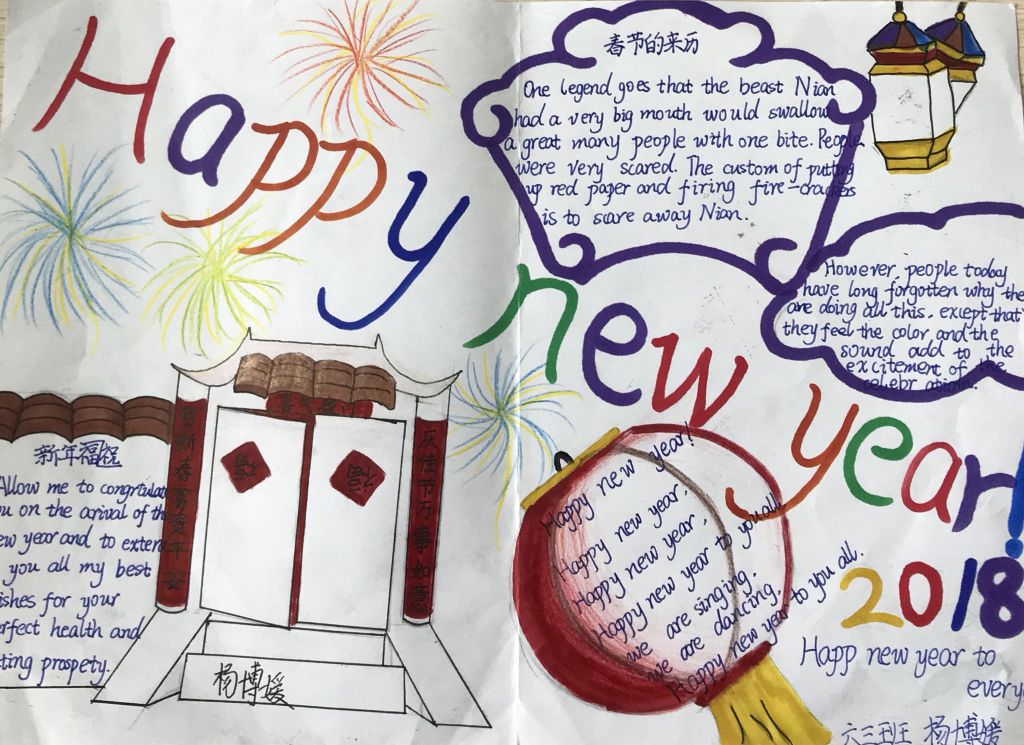 Happy
new
year!
2018
春节的来历
One legend goes that the beast Nian
had a very big mouth would swallow
a great many people with one bite. People
were very scared. The custom of putting
up red pager and firing fire-crackers
is to scare away Nian.
However, people today
have long forgotten why the
are doing all this, except that
they feel the color and the
sound add to the
excitement of the
celebr ations.
贺新春富贵平安
庆佳节万事如意
福
福
新年福
Allow me to congrtulat
ou on the arival of th
ew year and to exten
you all my best
ishes for your
erfect health and
ting prospety.
杨博媛
Happy new year!
Happy new year.
Happy new year,
Happy new year to you all
we are singing.
we are dancing.
Happy new year to you all.
Happ new year to
every
六三班 杨博媛